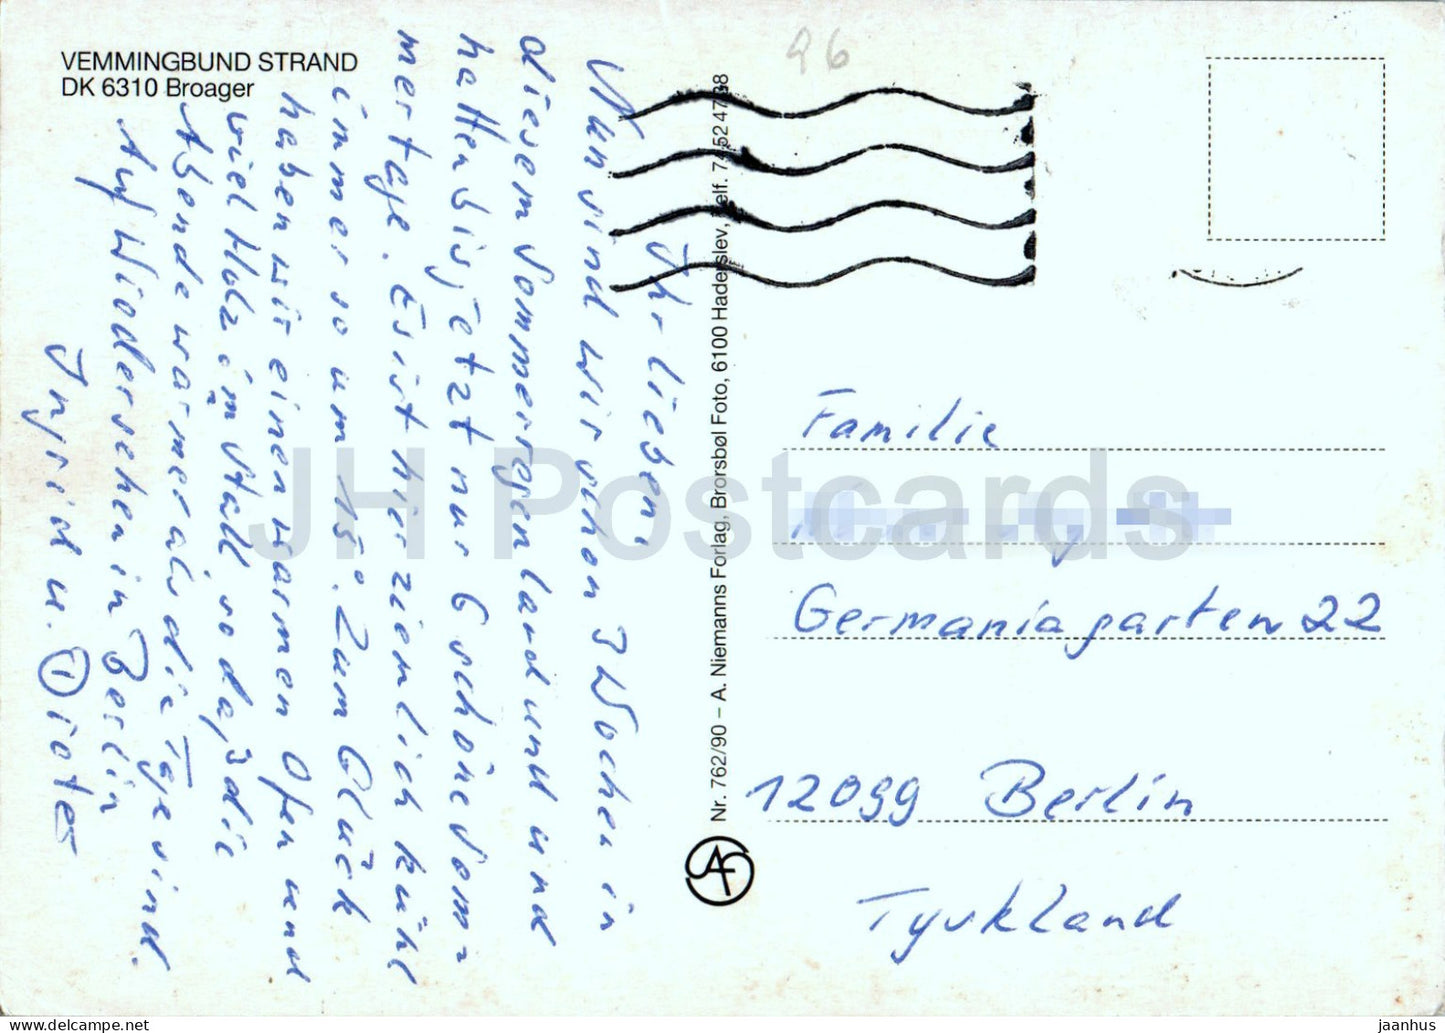 VEMMINGBUND STRAND
DK 6310 Broager
96
Ihr lieben!
Nun sind wir schon 3 Wochen in
diesem Sommerregenland und
hatten bis jetzt nur 6 schöne Som-
mertage. Es ist hier ziemlich kühl
immer so um 15°. Zum Glück
haben wir einen warmen Ofen und
viel Holz im Stall, so daß die
Abende wärmer als die Tage sind.
Auf Wiedersehen in Berlin
Ingrid u. Dieter
Nr. 762/90 – A. Niemanns Forlag, Brorsbøl Foto, 6100 Haderslev, Telf. 74524738
Familie
Germaniagarten 22
12099 Berlin
Tyskland
JH Postcards
jaanhus
delcampe.net